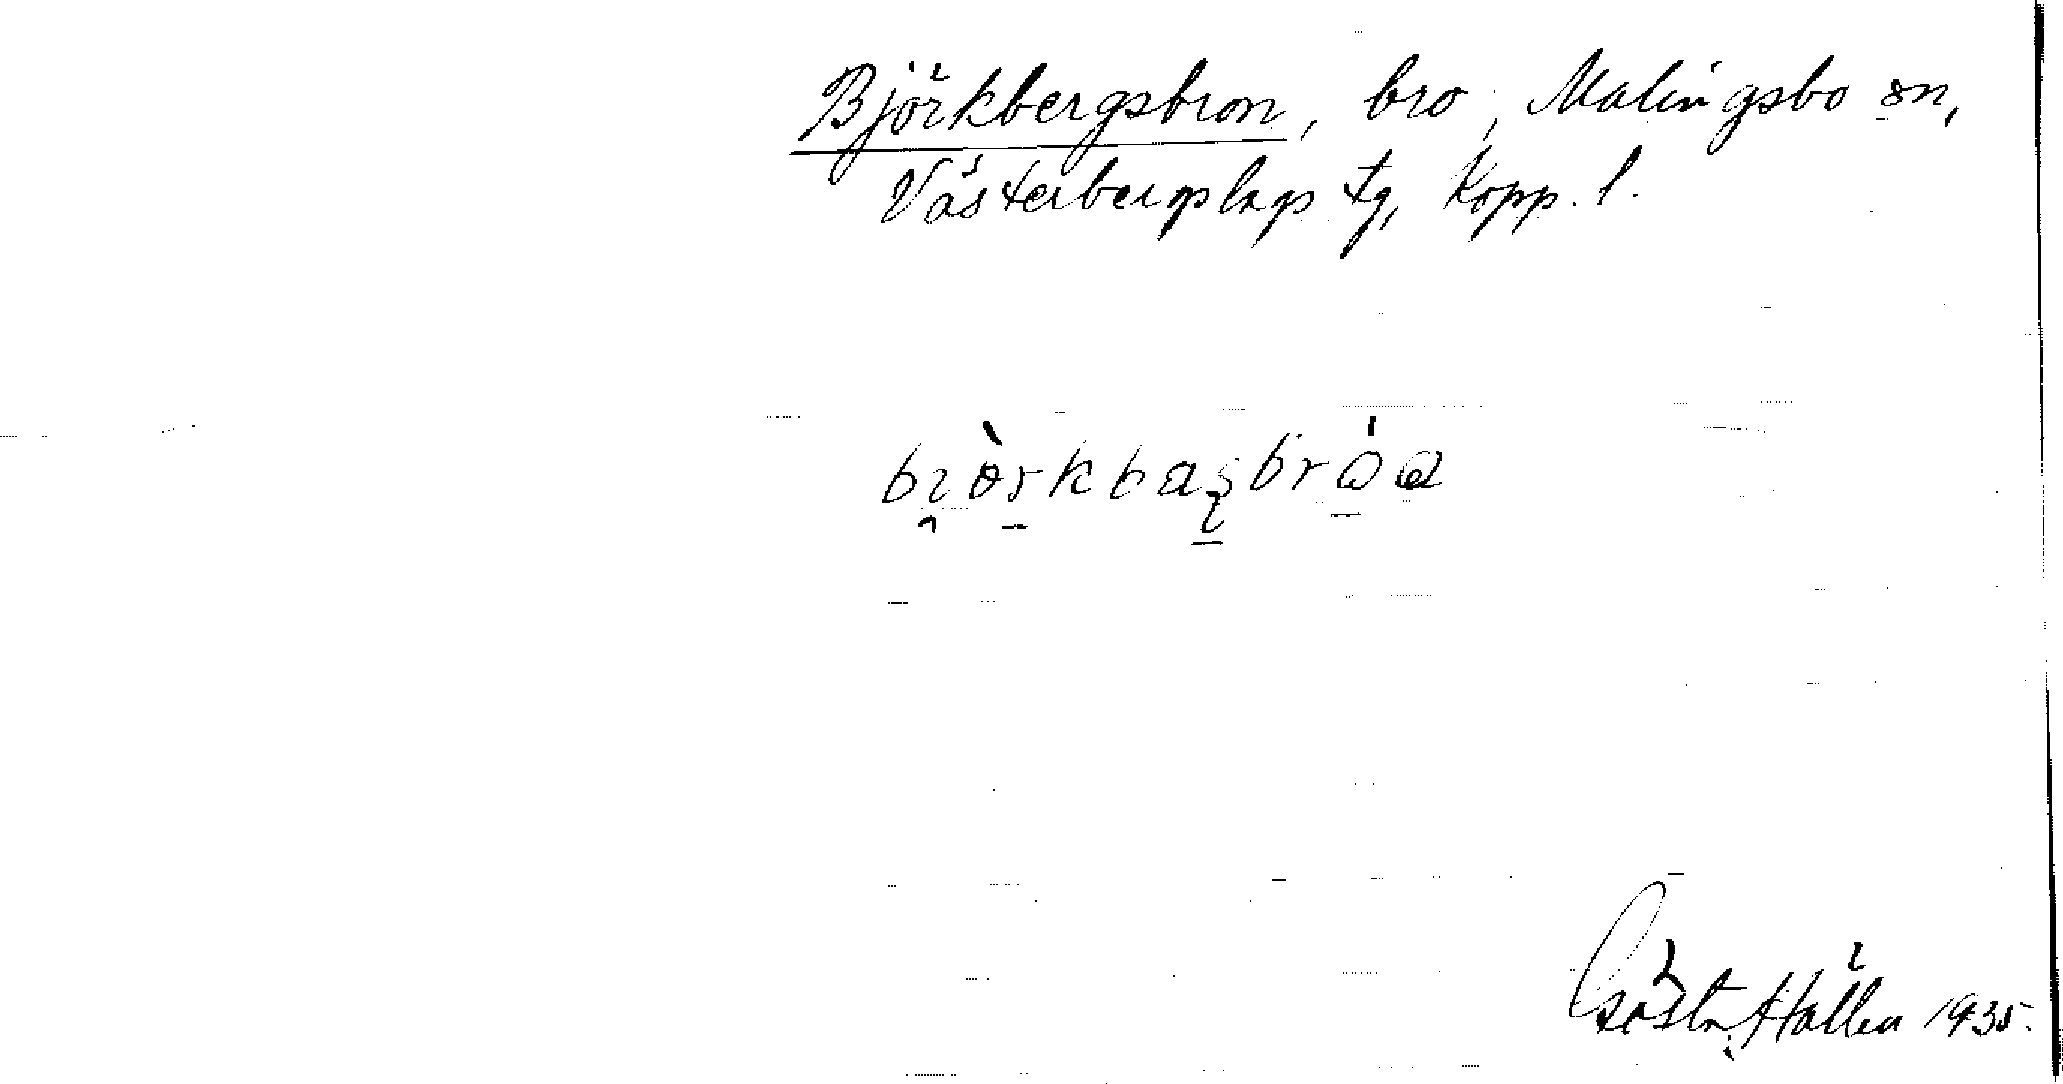 Björkbergsbron, bro, Malingsbo sn,
Västerbergslags tg, Kopp. l.
Gösta Hállen 1935.